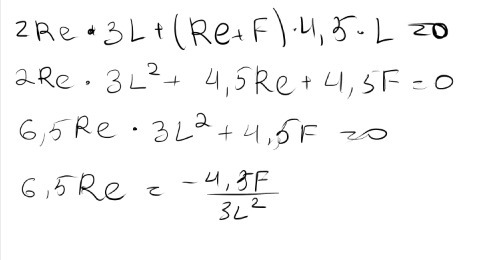 2Re · 3L + (Re + F) · 4,5 · L = 0
2Re · 3L² + 4,5Re + 4,5F = 0
6,5Re · 3L² + 4,5F = 0
6,5Re = -4,5F / 3L²